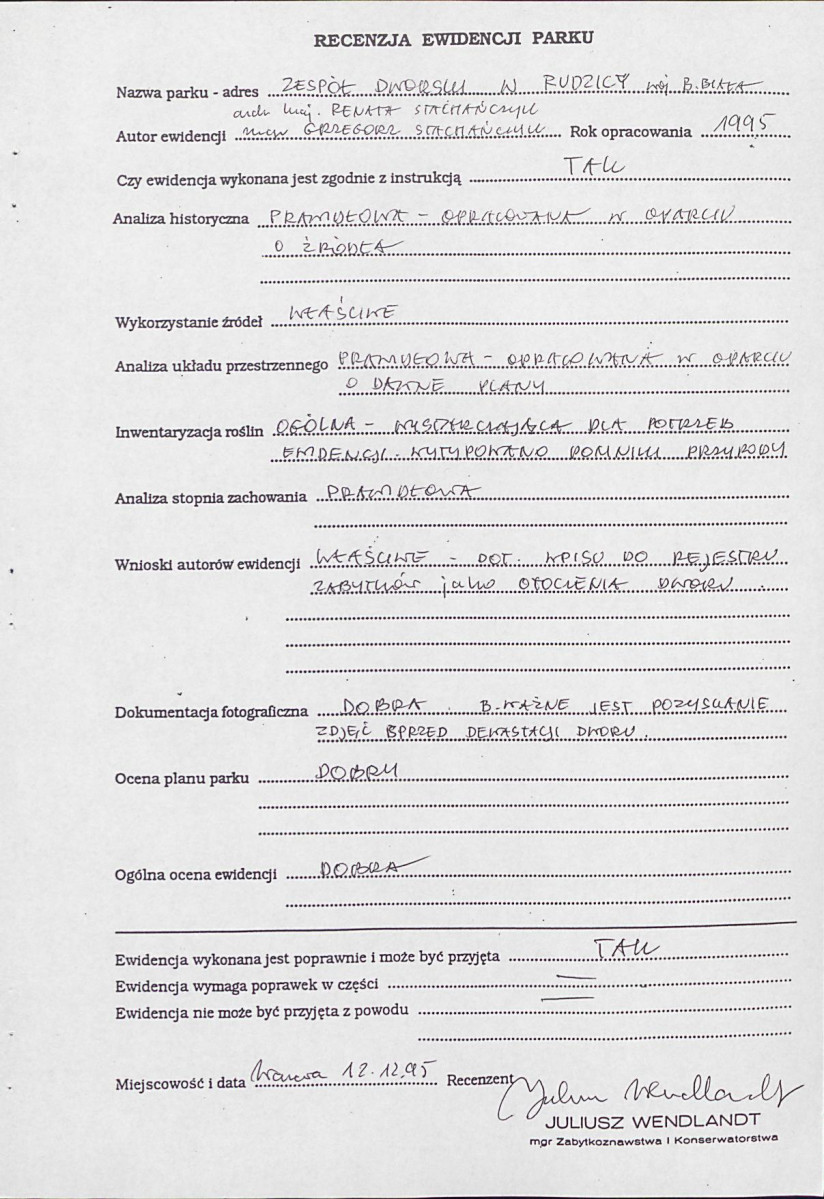 RECENZJA EWIDENCJI PARKU
Nazwa parku - adres ZESPÓŁ DWORSKI W RUDZICY woj. B.BIAŁA
arch. kraj. RENATA STACHAŃCZYK
Autor ewidencji GRZEGORZ STACHAŃCZYK Rok opracowania 1995
Czy ewidencja wykonana jest zgodnie z instrukcją TAK
Analiza historyczna PRAWIDŁOWA - OPRACOWANA W OPARCIU
O ŹRÓDŁA
Wykorzystanie źródeł WŁAŚCIWE
Analiza układu przestrzennego PRAWIDŁOWA - OPRACOWANA W OPARCIU
O DAWNE PLANY
Inwentaryzacja roślin OGÓLNA - WYSTARCZAJĄCA DLA POTRZEB
EWIDENCJI. WYTYPOWANO POMNIKI PRZYRODY
Analiza stopnia zachowania PRAWIDŁOWA
Wnioski autorów ewidencji WŁAŚCIWE - DOT. WPISU DO REJESTRU
ZABYTKÓW jako OTOCZENIA DWORU.
Dokumentacja fotograficzna DOBRA. B.WAŻNE JEST POZYSKANIE
ZDJĘĆ SPRZED DEWASTACJI DWORU.
Ocena planu parku DOBRY
Ogólna ocena ewidencji DOBRA
Ewidencja wykonana jest poprawnie i może być przyjęta TAK
Ewidencja wymaga poprawek w części —
Ewidencja nie może być przyjęta z powodu —
Miejscowość i data Warszawa 12.12.95 Recenzent Juliusz Wendlandt
JULIUSZ WENDLANDT
mgr Zabytkoznawstwa i Konserwatorstwa